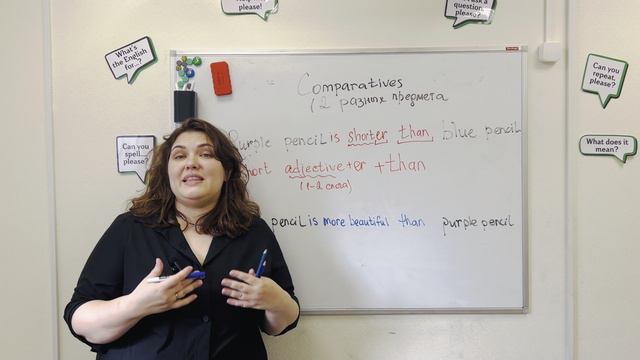 please!
ask a
question,
please?
What's
the English
for...?
Can you
repeat,
please?
Can you
spell...,
please?
What does it
mean?
Comparatives
(2 разных предмета
Purple pencil is shorter than blue pencil
short adjective+er + than
(1-2 слога)
pencil is more beautiful than purple pencil